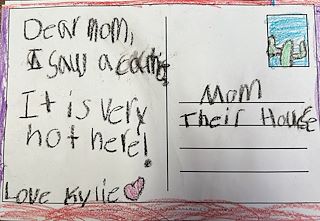 Dear Mom,
I saw a cactis
It is very
hot here!
Love Kylie
Mom
Their House